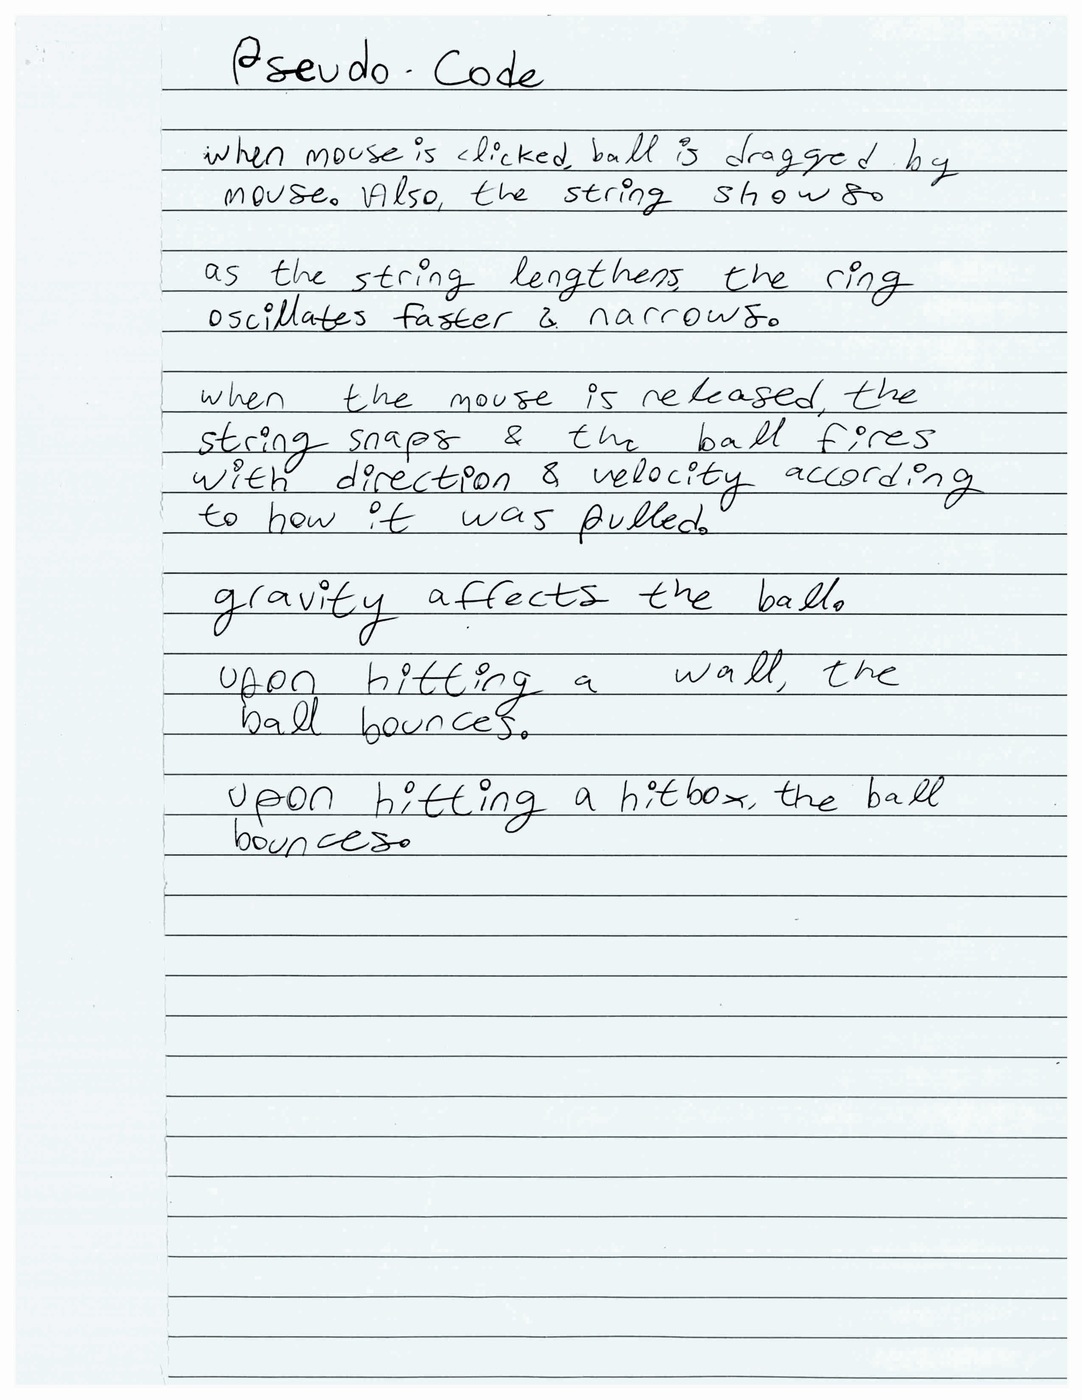 Pseudo-Code
when mouse is clicked, ball is dragged by
mouse. Also, the string shows.
as the string lengthens, the ring
oscillates faster & narrows.
when the mouse is released, the
string snaps & the ball fires
with direction & velocity according
to how it was pulled.
gravity affects the ball.
upon hitting a wall, the
ball bounces.
upon hitting a hitbox, the ball
bounces.